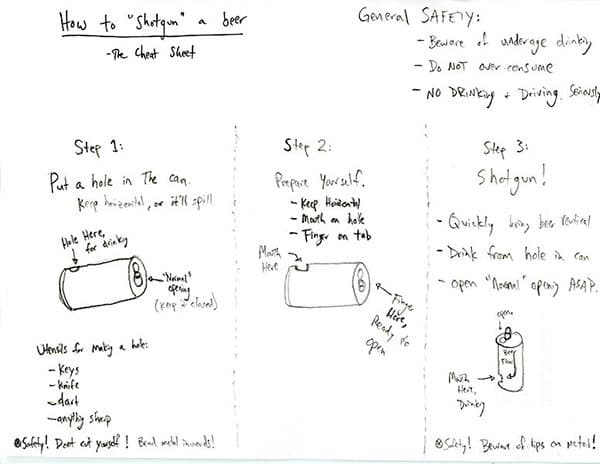 How to "Shotgun" a beer
- The Cheat Sheet
General SAFETY:
- Beware of underage drinking
- Do NOT over consume
- NO DRINKING + Driving. Seriously
Step 1:
Put a hole in The can.
Keep horizontal, or it'll spill
Hole Here,
for drinking
"Normal"
opening
(keep it closed)
Utensils for making a hole:
- Keys
- Knife
- dart
- anything sharp
Safety! Dont cut yourself! Bend metal inwards!
Step 2:
Prepare Yourself.
- Keep Horizontal
- Mouth on hole
- Finger on tab
Mouth
Here
Finger
Here,
Ready to
open
Step 3:
Shotgun!
- Quickly bring beer vertical
- Drink from hole in can
- open "Normal" opening ASAP.
open
Beer
Flow
Mouth
Here,
Drinking
Safety! Beware of lips on metal!